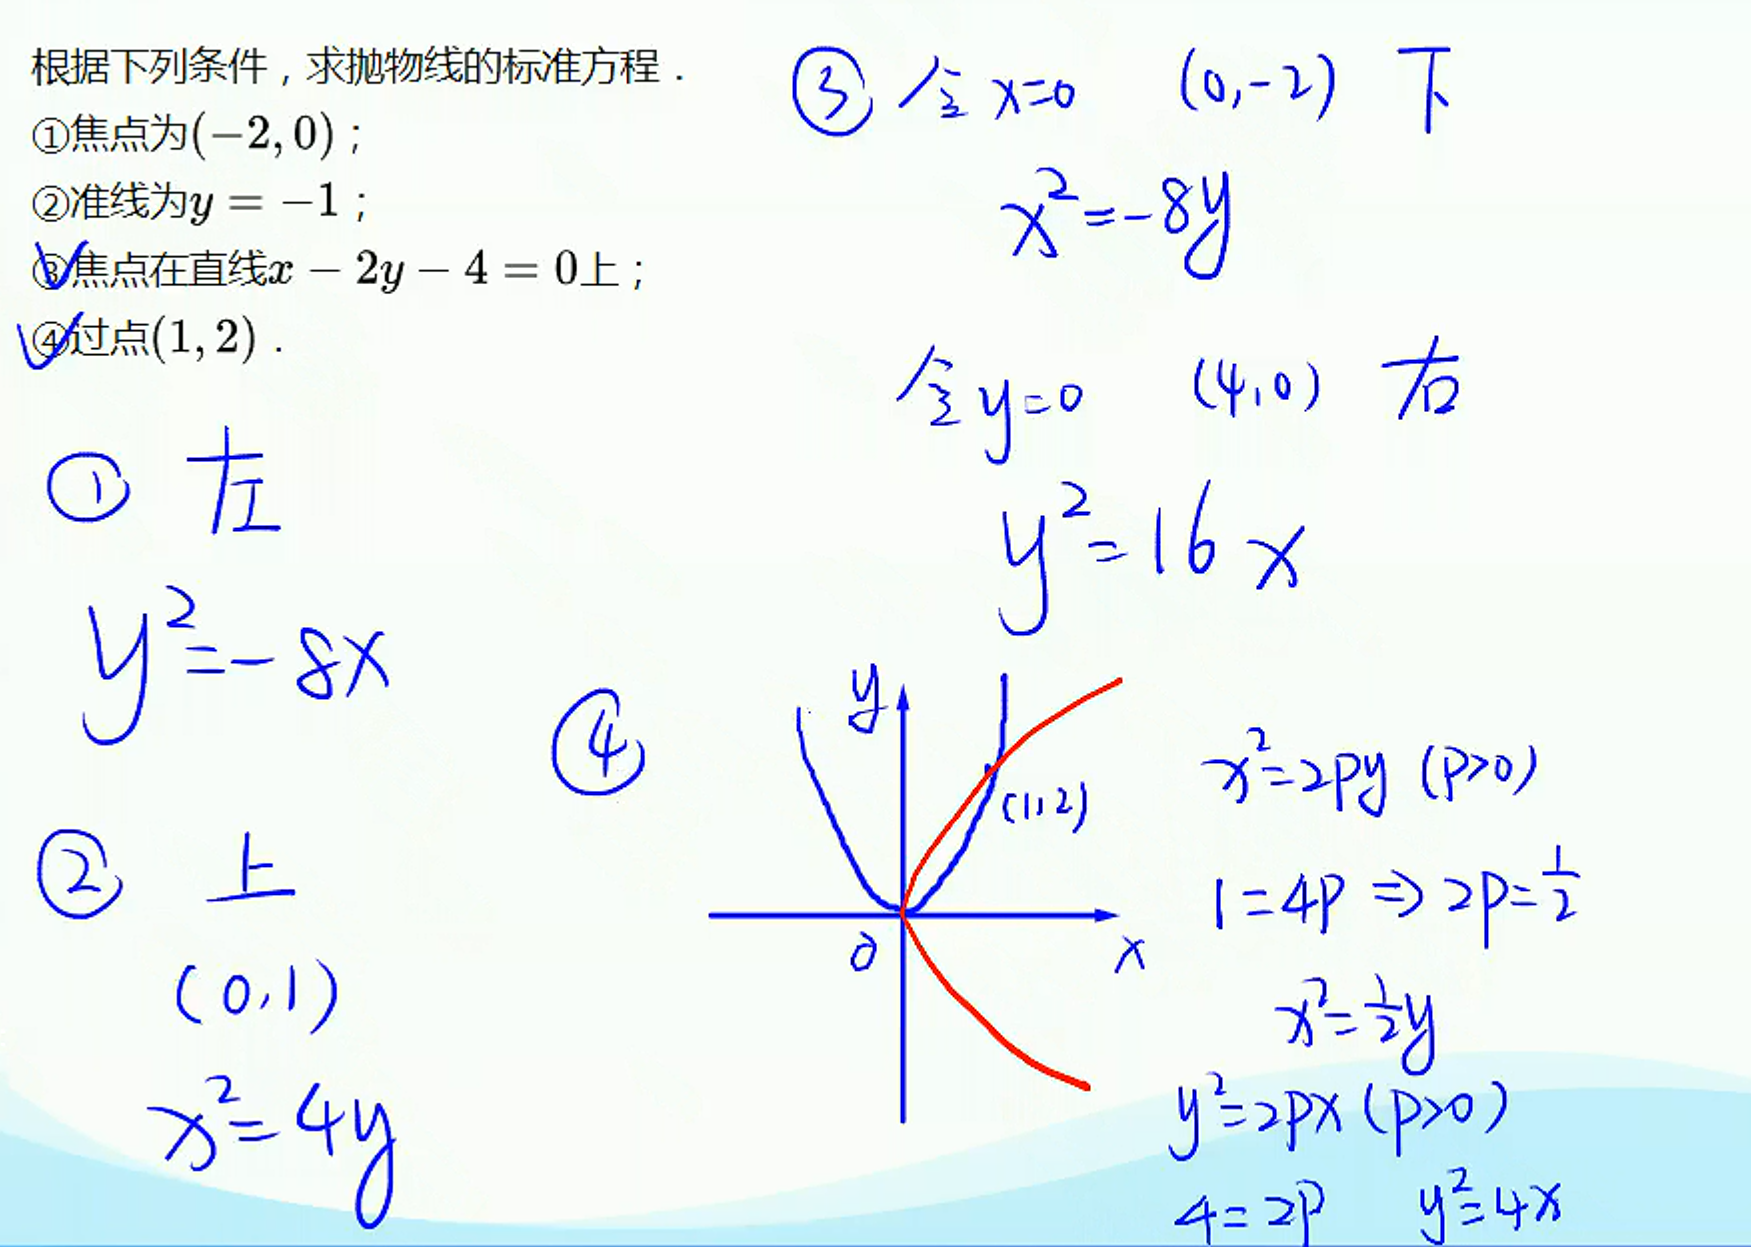 根据下列条件，求抛物线的标准方程．
①焦点为(−2, 0)；
②准线为y = −1；
③焦点在直线x − 2y − 4 = 0上；
④过点(1, 2)．
① 左
y²=-8x
② 上
(0,1)
x²=4y
③ 令x=0 (0,-2) 下
x²=-8y
令y=0 (4,0) 右
y²=16x
④
y
(1,2)
0
x
x²=2py (p>0)
1=4p ⇒ 2p=1/2
x²=1/2y
y²=2px (p>0)
4=2p y²=4x